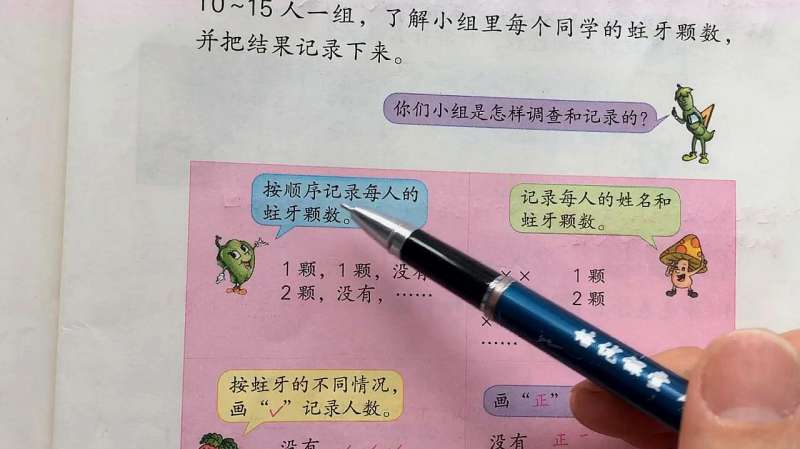 10~15人一组，了解小组里每个同学的蛀牙颗数，
并把结果记录下来。
你们小组是怎样调查和记录的？
按顺序记录每人的
蛀牙颗数。
1颗，1颗，没有
2颗，没有，……
记录每人的姓名和
蛀牙颗数。
×× 1颗
2颗
×
……
按蛀牙的不同情况，
画“✓”记录人数。
没有 ✓ ✓ ✓
画“正”
没有 正 一